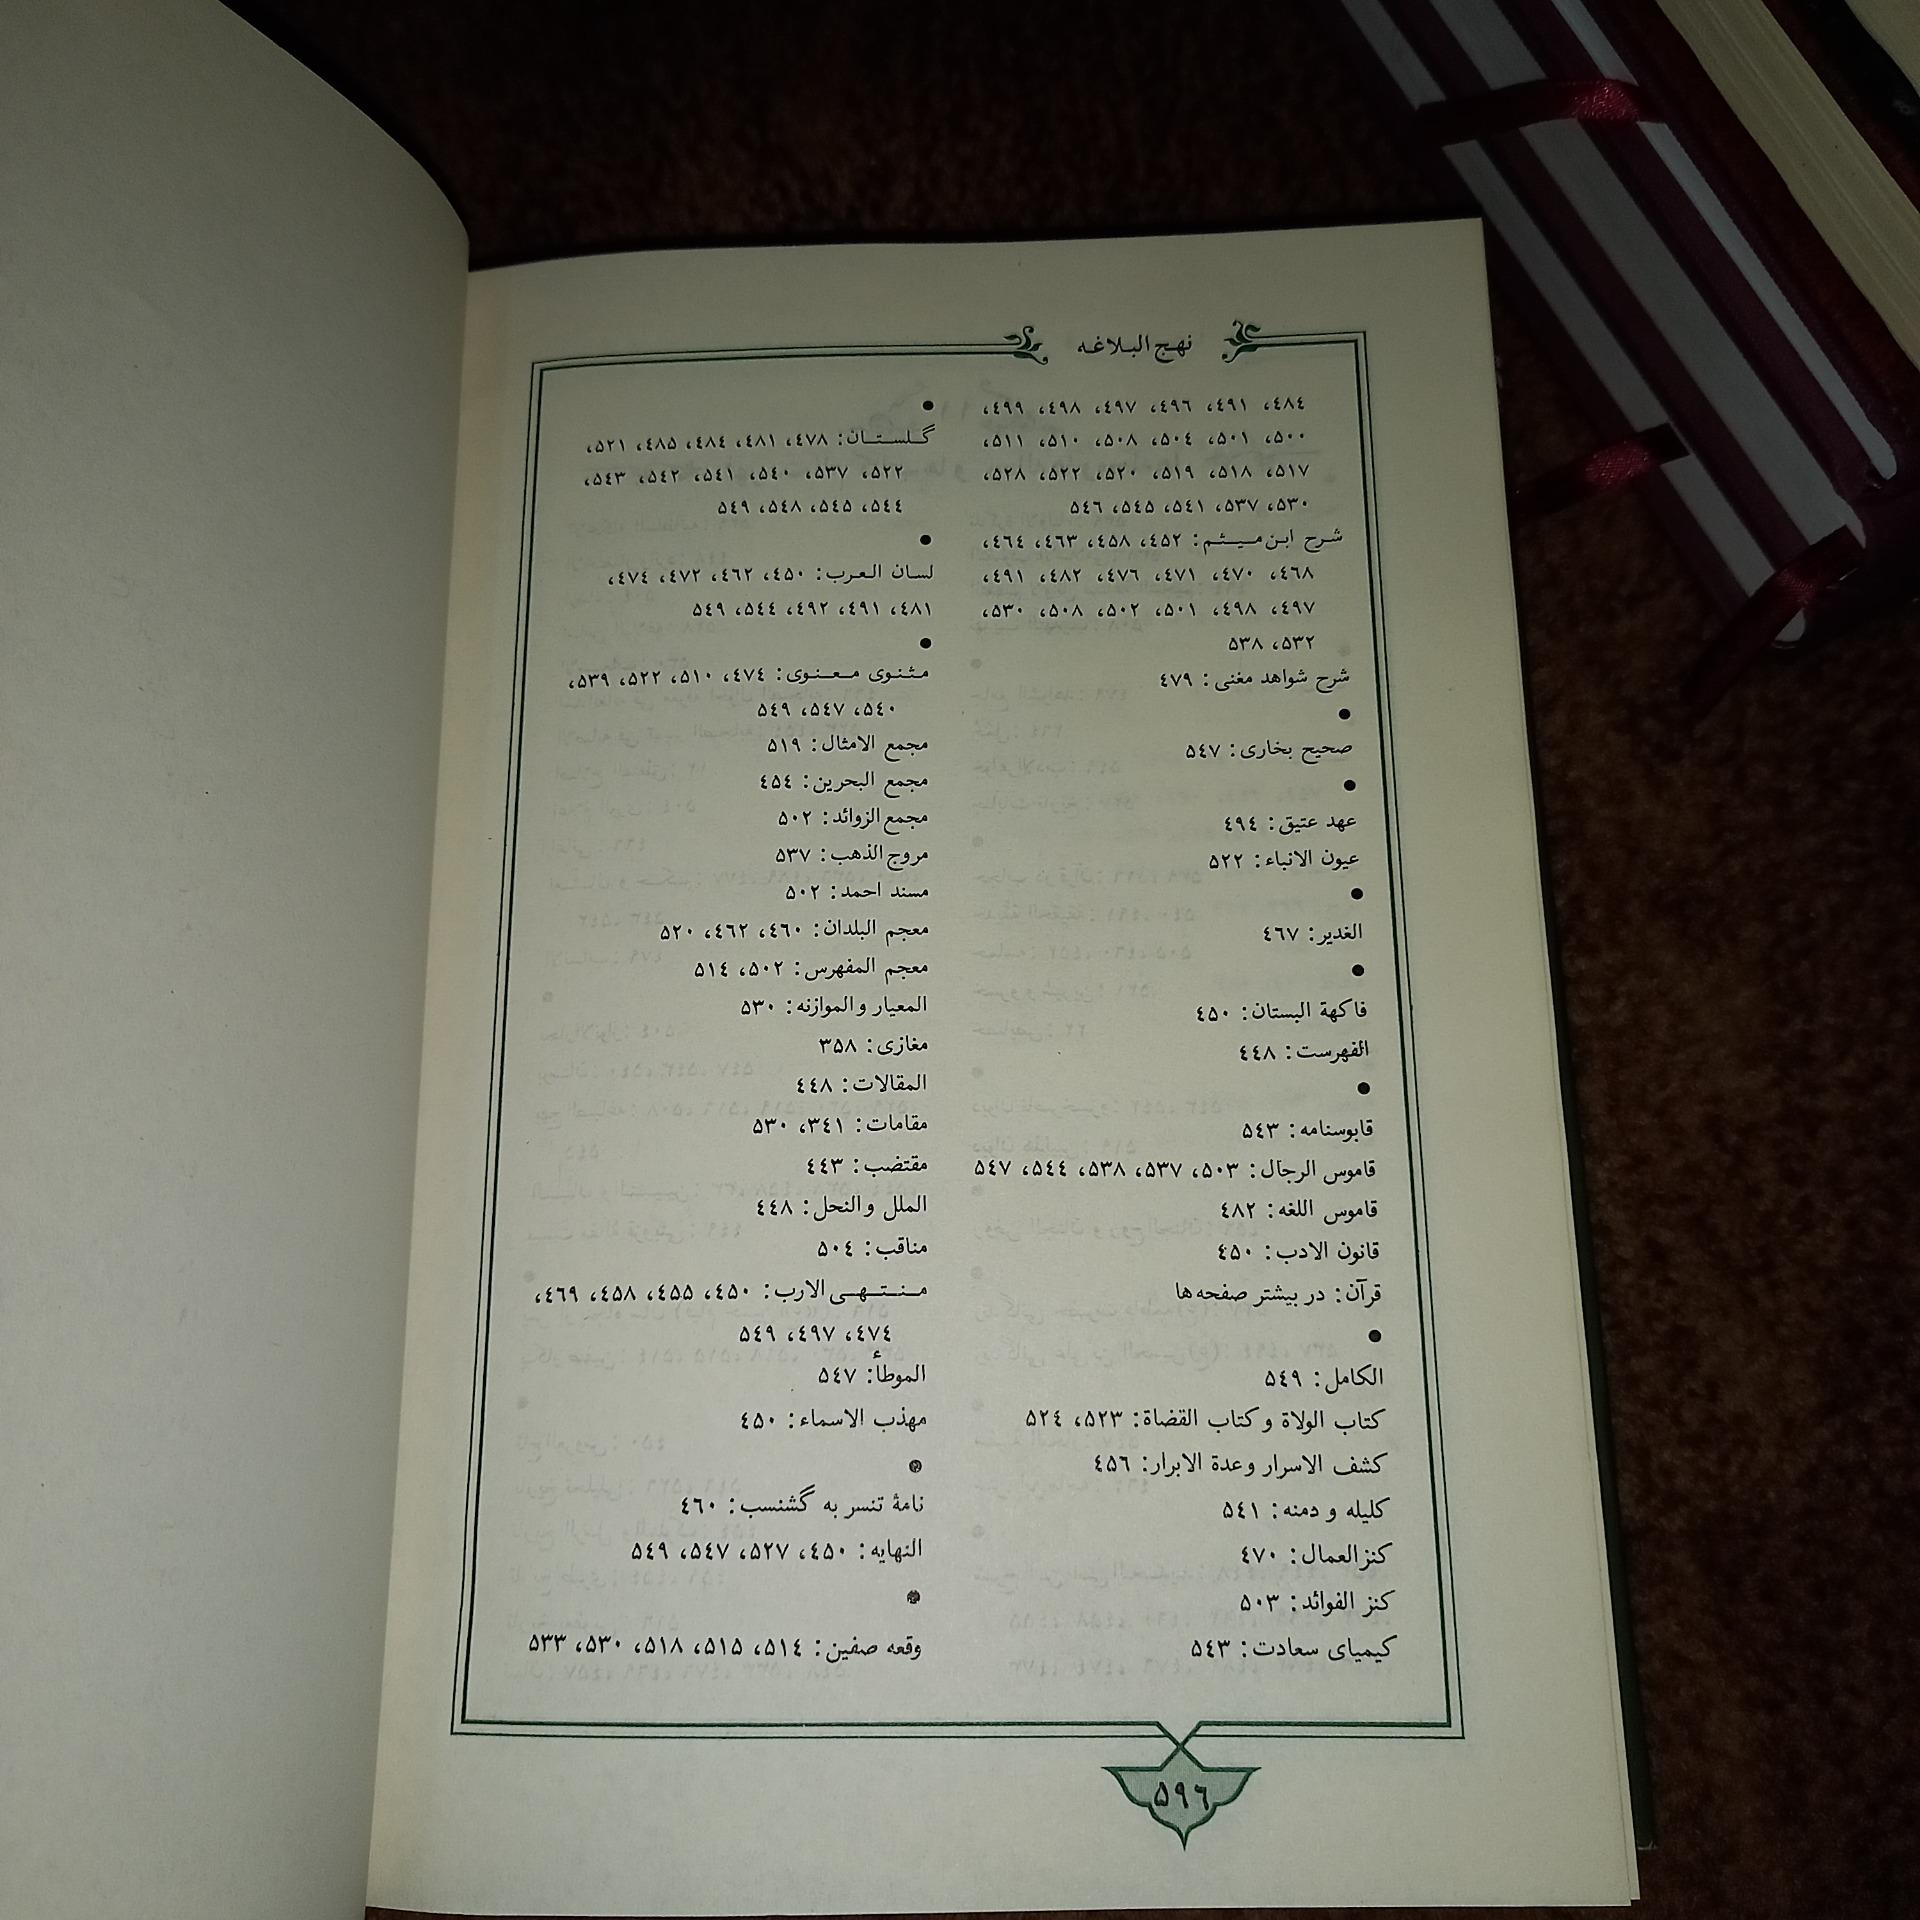 نهج البلاغه
٤٨٤، ٤٩١، ٤٩٦، ٤٩٧، ٤٩٨، ٤٩٩،
۵٠٠، ۵٠١، ۵٠٤، ۵٠٨، ۵١٠، ۵١١،
۵١٧، ۵١٨، ۵١٩، ۵٢٠، ۵٢٢، ۵٢٨،
۵٣٠، ۵٣٧، ۵٤١، ۵٤۵، ۵٤٦
شرح ابن میثم: ٤۵٢، ٤۵٨، ٤٦٣، ٤٦٤،
٤٦٨، ٤٧٠، ٤٧١، ٤٧٦، ٤٨٢، ٤٩١،
٤٩٧، ٤٩٨، ۵٠١، ۵٠٢، ۵٠٨، ۵٣٠،
۵٣٢، ۵٣٨
شرح شواهد مغنی: ٤٧٩
●
صحیح بخاری: ۵٤٧
●
عهد عتیق: ٤٩٤
عیون الانباء: ۵٢٢
●
الغدیر: ٤٦٧
●
فاکهة البستان: ٤۵٠
الفهرست: ٤٤٨
●
قابوسنامه: ۵٤٣
قاموس الرجال: ۵٠٣، ۵٣٧، ۵٣٨، ۵٤٤، ۵٤٧
قاموس اللغه: ٤٨٢
قانون الادب: ٤۵٠
قرآن: در بیشتر صفحه‌ها
●
الکامل: ۵٤٩
کتاب الولاة و کتاب القضاة: ۵٢٣، ۵٢٤
کشف الاسرار وعدة الابرار: ٤۵٦
کلیله و دمنه: ۵٤١
کنزالعمال: ٤٧٠
کنز الفوائد: ۵٠٣
کیمیای سعادت: ۵٤٣
●
گلستان: ٤٧٨، ٤٨١، ٤٨٤، ٤٨۵، ۵٢١،
۵٢٢، ۵٣٧، ۵٤٠، ۵٤١، ۵٤٢، ۵٤٣،
۵٤٤، ۵٤۵، ۵٤٨، ۵٤٩
●
لسان العرب: ٤۵٠، ٤٦٢، ٤٧٢، ٤٧٤،
٤٨١، ٤٩١، ٤٩٢، ۵٤٤، ۵٤٩
●
مثنوی معنوی: ٤٧٤، ۵١٠، ۵٢٢، ۵٣٩،
۵٤٠، ۵٤٧، ۵٤٩
مجمع الامثال: ۵١٩
مجمع البحرین: ٤۵٤
مجمع الزوائد: ۵٠٢
مروج الذهب: ۵٣٧
مسند احمد: ۵٠٢
معجم البلدان: ٤٦٠، ٤٦٢، ۵٢٠
معجم المفهرس: ۵٠٢، ۵١٤
المعیار والموازنه: ۵٣٠
مغازی: ٣۵٨
المقالات: ٤٤٨
مقامات: ٣٤١، ۵٣٠
مقتضب: ٤٤٣
الملل والنحل: ٤٤٨
مناقب: ۵٠٤
منتهی الارب: ٤۵٠، ٤۵۵، ٤۵٨، ٤٦٩،
٤٧٤، ٤٩٧، ۵٤٩
الموطأ: ۵٤٧
مهذب الاسماء: ٤۵٠
●
نامهٔ تنسر به گشنسب: ٤٦٠
النهایه: ٤۵٠، ۵٢٧، ۵٤٧، ۵٤٩
●
وقعه صفین: ۵١٤، ۵١۵، ۵١٨، ۵٣٠، ۵٣٣
۵٩٦